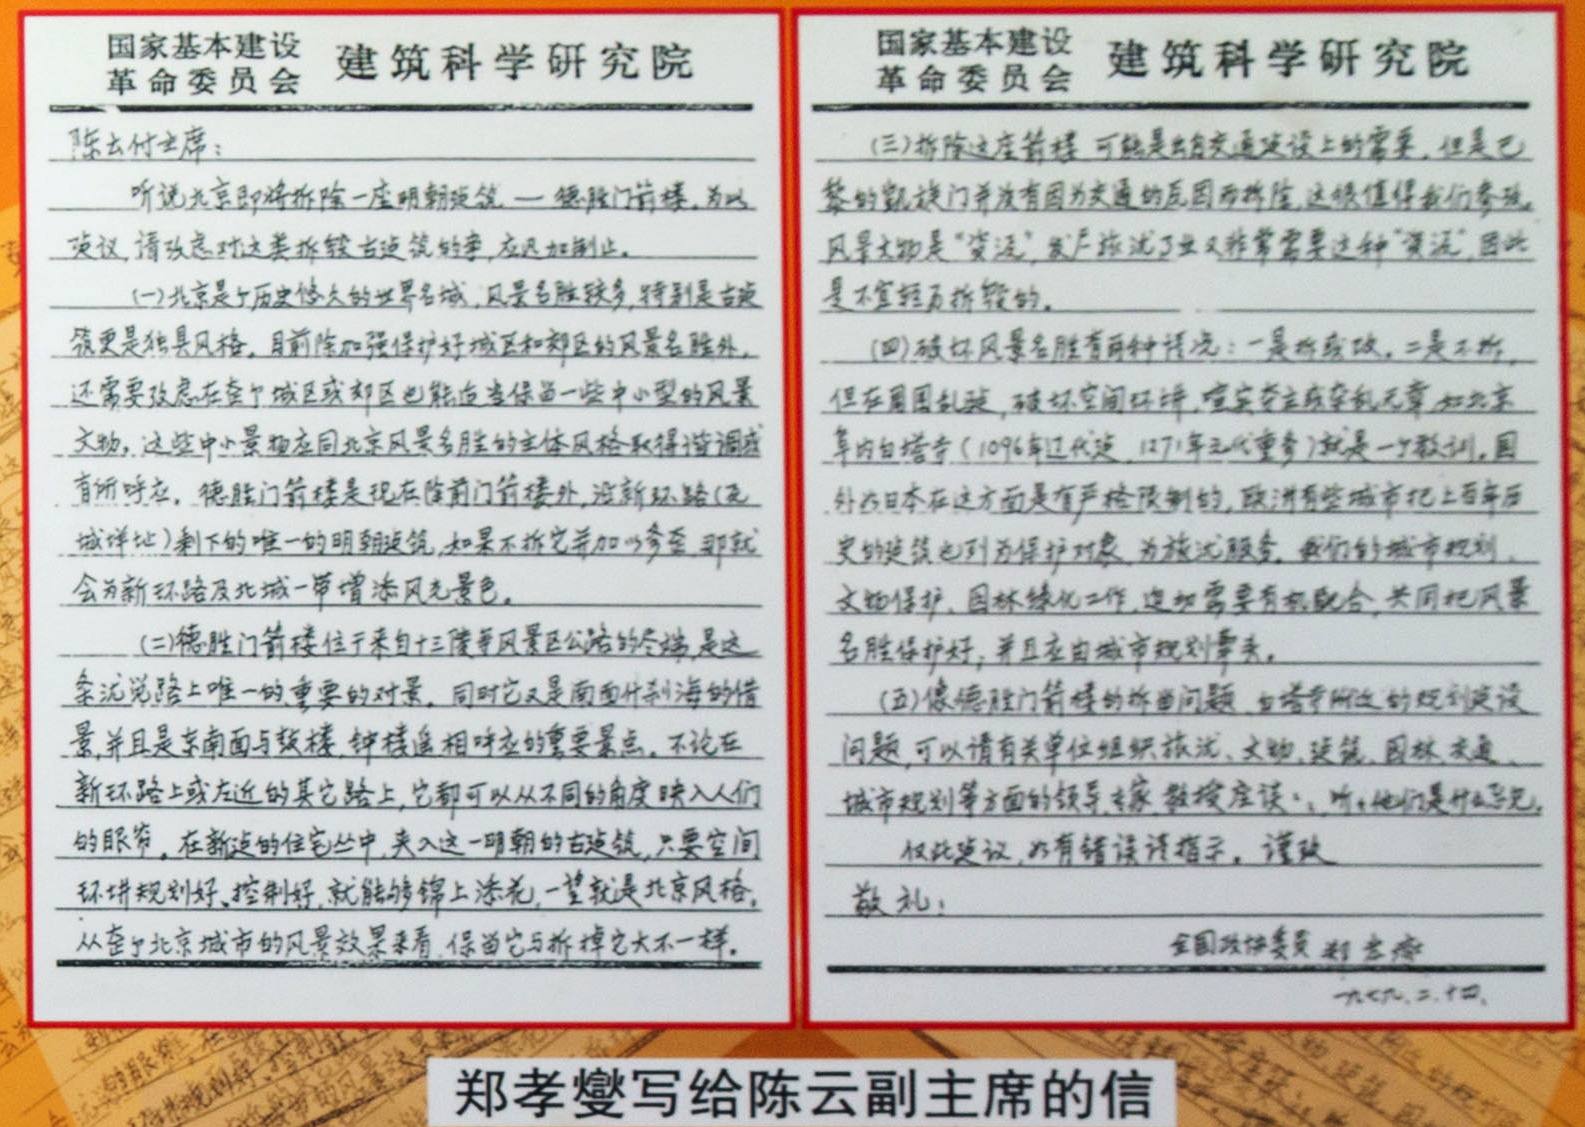 国家基本建设
革命委员会 建筑科学研究院
陈云付主席：
听说北京即将拆除一座明朝建筑——德胜门箭楼。为此
建议，请考虑对这类拆毁古建筑的事，应迅加制止。
(一)北京是个历史悠久的世界名城，风景名胜较多，特别是古建
筑更是独具风格。目前除加强保护好城区和郊区的风景名胜外，
还需要考虑在整个城区或郊区也能适当保留一些中小型的风景
文物。这些中小景物应同北京风景名胜的主体风格取得谐调或
有所呼应。德胜门箭楼是现在除前门箭楼外，沿新环路(瓦
城墙址)剩下的唯一的明朝建筑，如果不拆它并加以修整，那就
会为新环路及北城一带增添风光景色。
(二)德胜门箭楼位于来自十三陵等风景区公路的尽端，是这
条游览路上唯一的，重要的对景。同时它又是南面什刹海的借
景，并且是东南面与鼓楼、钟楼遥相呼应的重要景点。不论在
新环路上或左近的其它路上，它都可以从不同的角度映入人们
的眼帘。在新建的住宅丛中，夹入这一明朝的古建筑，只要空间
环境规划好、控制好，就能够锦上添花，一望就是北京风格。
从整个北京城市的风景效果来看，保留它与拆掉它大不一样。
国家基本建设
革命委员会 建筑科学研究院
(三)拆除这座箭楼，可能是出自交通建设上的需要，但是巴
黎的凯旋门并没有因为交通的原因而拆除，这很值得我们参考。
风景文物是“资源”，发展旅游事业又非常需要这种“资源”，因此
是不宜轻易拆毁的。
(四)破坏风景名胜有两种情况：一是拆或改。二是不拆，
但在周围乱建，破坏空间环境，喧宾夺主或杂乱无章，如北京
阜内白塔寺(1096年辽代建，1271年元代重修)就是一个教训。国
外如日本在这方面是有严格限制的，欧洲有些城市把上百年历
史的建筑也列为保护对象，为旅游服务。我们的城市规划、
文物保护、园林绿化工作，迫切需要有机配合，共同把风景
名胜保护好，并且应由城市规划牵头。
(五)像德胜门箭楼的拆留问题，白塔寺附近的规划建设
问题，可以请有关单位组织旅游、文物、建筑、园林、交通、
城市规划等方面的领导、专家、教授座谈、，听、他们是什么意见。
仅此建议，如有错误请指示。谨致
敬礼！
全国政协委员 郑孝燮
一九七九．二．十四．
郑孝燮写给陈云副主席的信